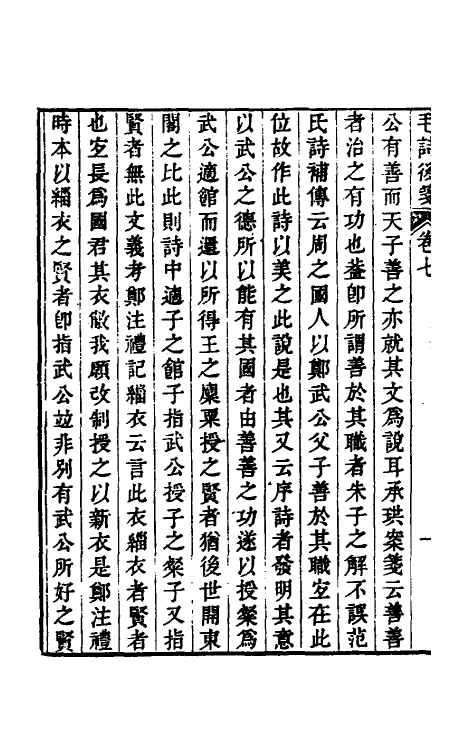 毛詩後箋 卷七 一
公有善而天子善之亦就其文爲說耳承珙案箋云善善
者治之有功也葢卽所謂善於其職者朱子之解不誤范
氏詩補傳云周之國人以鄭武公父子善於其職宐在此
位故作此詩以美之此說是也其又云序詩者發明其意
以武公之德所以能有其國者由善善之功遂以授粲爲
武公適館而還以所得王之廩粟授之賢者猶後世開東
閣之比此則詩中適子之館子指武公授子之粲子又指
賢者無此文義考鄭注禮記緇衣云言此衣緇衣者賢者
也宐長爲國君其衣敝我願改制授之以新衣是鄭注禮
時本以緇衣之賢者卽指武公竝非別有武公所好之賢